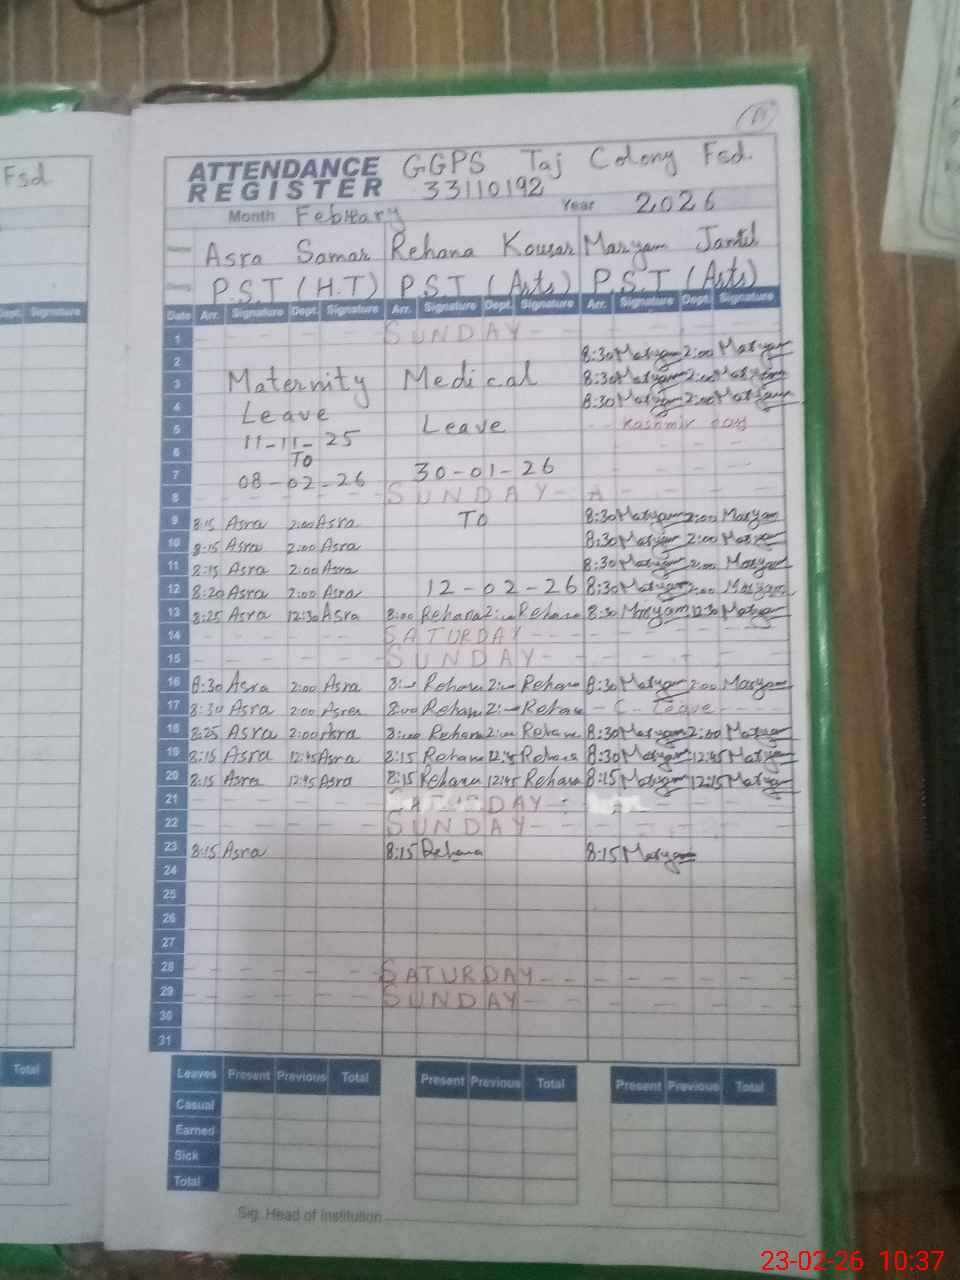 Fsd
ATTENDANCE REGISTER GGPS Taj Colony Fsd.
33110192
Month February Year 2026
Name Asra Samar Rehana Kousar Maryam Jamil
Desig P.S.T (H.T) P.S.T (Arts) P.S.T (Arts)
Dept. Signature
Date Arr. Signature Dept. Signature Arr. Signature Dept. Signature Arr. Signature Dept. Signature
1 SUNDAY
2 8:30 Maryam 2:00 Maryam
3 Maternity Medical 8:30 Maryam 2:00 Maryam
4 Leave 8:30 Maryam 2:00 Maryam
5 11-11-25 Leave Kashmir day
6 TO
7 08-02-26 30-01-26
8 SUNDAY
9 8:15 Asra 2:00 Asra TO 8:30 Maryam 2:00 Maryam
10 8:15 Asra 2:00 Asra 8:30 Maryam 2:00 Maryam
11 8:15 Asra 2:00 Asra 8:30 Maryam 2:00 Maryam
12 8:20 Asra 2:00 Asra 12-02-26 8:30 Maryam 2:00 Maryam
13 8:25 Asra 12:30 Asra 8:00 Rehana 2: Rehana 8:30 Maryam 12:30 Maryam
14 SATURDAY
15 SUNDAY
16 8:30 Asra 2:00 Asra 8: Rehana 2: Rehana 8:30 Maryam 2:00 Maryam
17 8:30 Asra 2:00 Asra 8:00 Rehana 2: Rehana C. Leave
18 8:25 Asra 2:00 Asra 8:00 Rehana 2: Rehana 8:30 Maryam 2:00 Maryam
19 8:15 Asra 12:45 Asra 8:15 Rehana 12:45 Rehana 8:30 Maryam 12:45 Maryam
20 8:15 Asra 12:45 Asra 8:15 Rehana 12:45 Rehana 8:15 Maryam 12:15 Maryam
21 SATURDAY
22 SUNDAY
23 8:15 Asra 8:15 Rehana 8:15 Maryam
24
25
26
27
28 SATURDAY
29 SUNDAY
30
31
Total
Leaves Present Previous Total Present Previous Total Present Previous Total
Casual
Earned
Sick
Total
Sig. Head of Institution
23-02-26 10:37